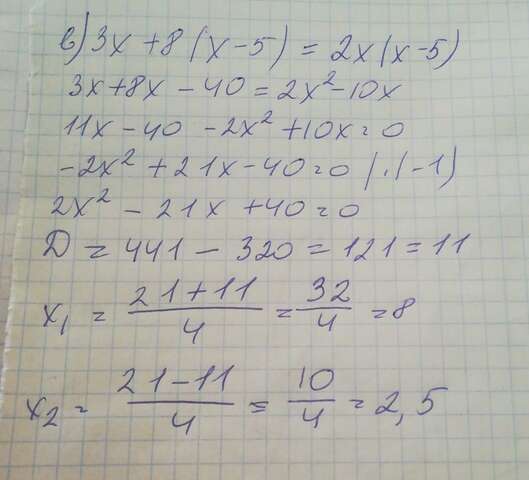 в) 3x + 8(x - 5) = 2x(x - 5)
3x + 8x - 40 = 2x² - 10x
11x - 40 - 2x² + 10x = 0
-2x² + 21x - 40 = 0 | · (-1)
2x² - 21x + 40 = 0
D = 441 - 320 = 121 = 11
x₁ = (21 + 11)/4 = 32/4 = 8
x₂ = (21 - 11)/4 = 10/4 = 2,5